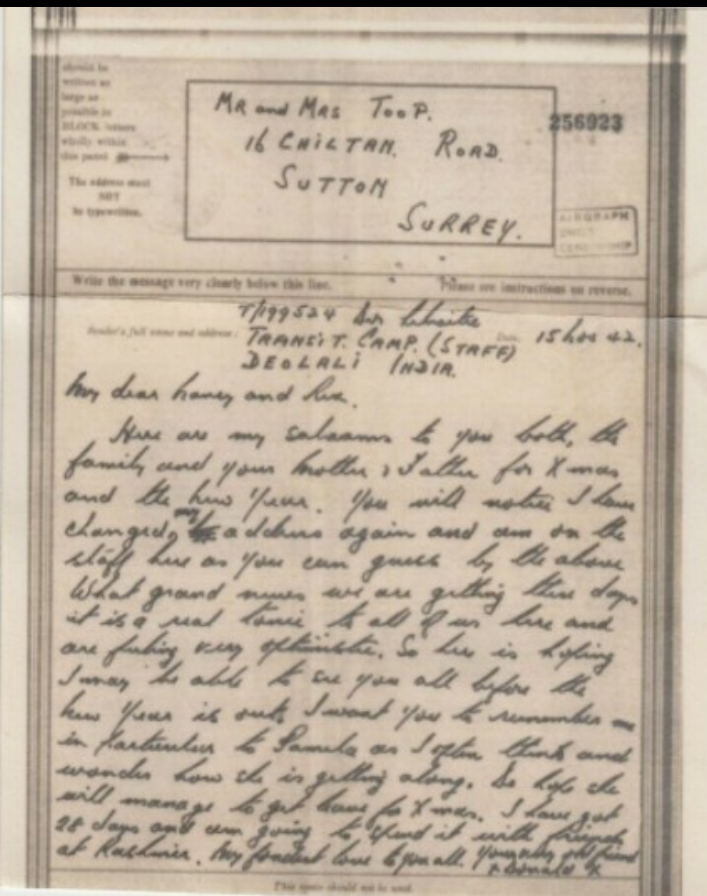 should be
written as
large as
possible in
BLOCK letters
wholly within
this panel
The address must
NOT
be typewritten.
MR and MRS TOOP.
16 CHILTAN. ROAD.
SUTTON
SURREY.
256923
AIRGRAPH
CENSORSHIP
Write the message very clearly below this line.
Please see instructions on reverse.
Sender's full name and address:
T/199524 Dvr
TRANSIT. CAMP. (STAFF)
DEOLALI INDIA.
Date
15 Nov 42.
My dear and
Here are my salaams to you both, the
family and your mother & Father for Xmas
and the New Year. You will notice I have
changed my address again and am on the
staff here as you can guess by the above
What grand news we are getting these days
it is a real tonic to all of us here and
are feeling very optimistic. So here is hoping
I may be able to see you all before the
New Year is out. I want you to remember me
in particular to Pamela as I often think and
wonder how she is getting along. Do hope she
will manage to get leave for Xmas. I have got
28 days and am going to spend it with friends
at Kashmir. My fondest love to you all. Your very old friend
x Donald x
This space should not be used.